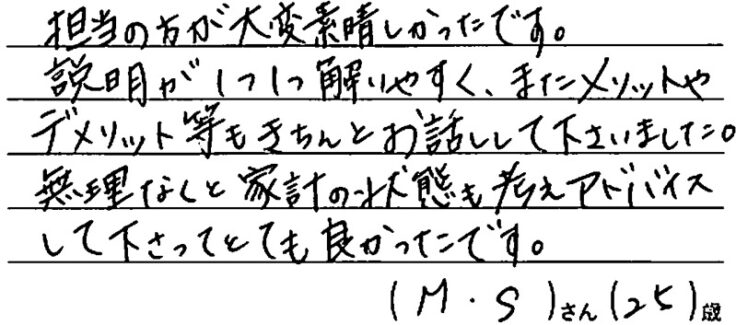 担当の方が大変素晴しかったです。
説明が1つ1つ解りやすく、またメリットや
デメリット等もきちんとお話しして下さいました。
無理なくと家計の状態も考えアドバイス
して下さってとても良かったです。
(M・S)さん(25)歳